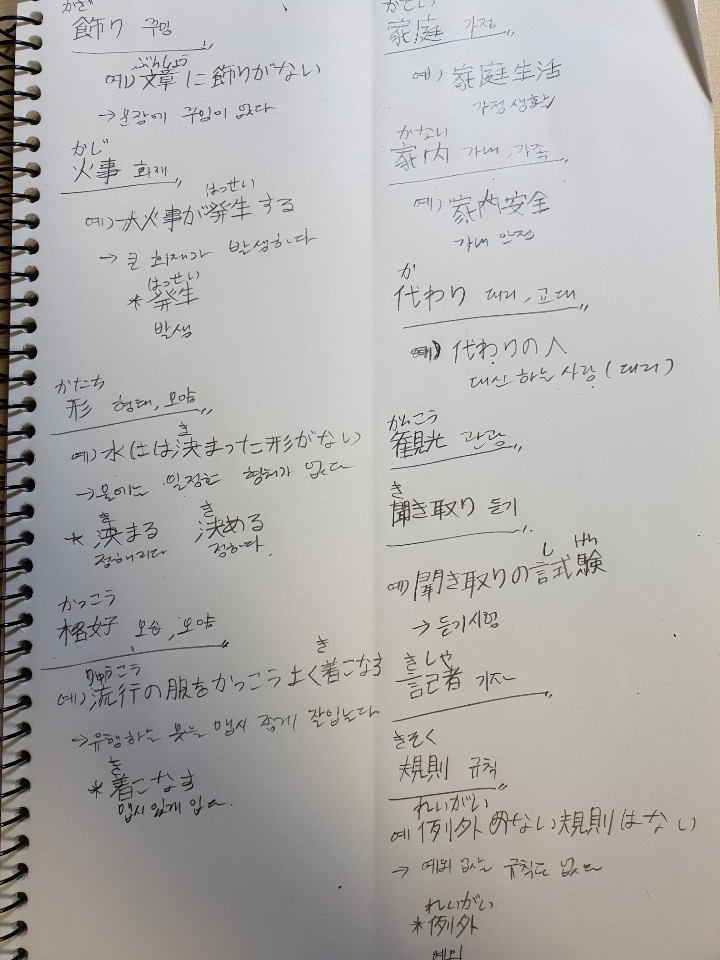 かざ
飾り 꾸밈
ぶんしょう
예) 文章に飾りがない
→ 문장에 꾸밈이 없다
かじ
火事 화재
はっせい
예) 大火事が発生する
→ 큰 화재가 발생하다
はっせい
* 発生
발생
かたち
形 형태, 모양
き
예) 水には決まった形がない
→ 물에는 일정한 형태가 없다
き き
* 決まる 決める
정해지다 정하다
かっこう
格好 모습, 모양
りゅうこう き
예) 流行の服をかっこうよく着こなす
→ 유행하는 옷을 맵시 좋게 잘입는다
き
* 着こなす
맵시 있게 입다
かてい
家庭 가정
예) 家庭生活
가정 생활
かない
家内 가내, 가족
예) 家内安全
가내 안전
か
代わり 대리, 교대
예) 代わりの人
대신 하는 사람 (대리)
かんこう
観光 관광
き
聞き取り 듣기
し けん
예) 聞き取りの試験
→ 듣기시험
きしゃ
記者 기자
きそく
規則 규칙
れいがい
예 例外のない規則はない
→ 예외 없는 규칙은 없다
れいがい
* 例外
예외